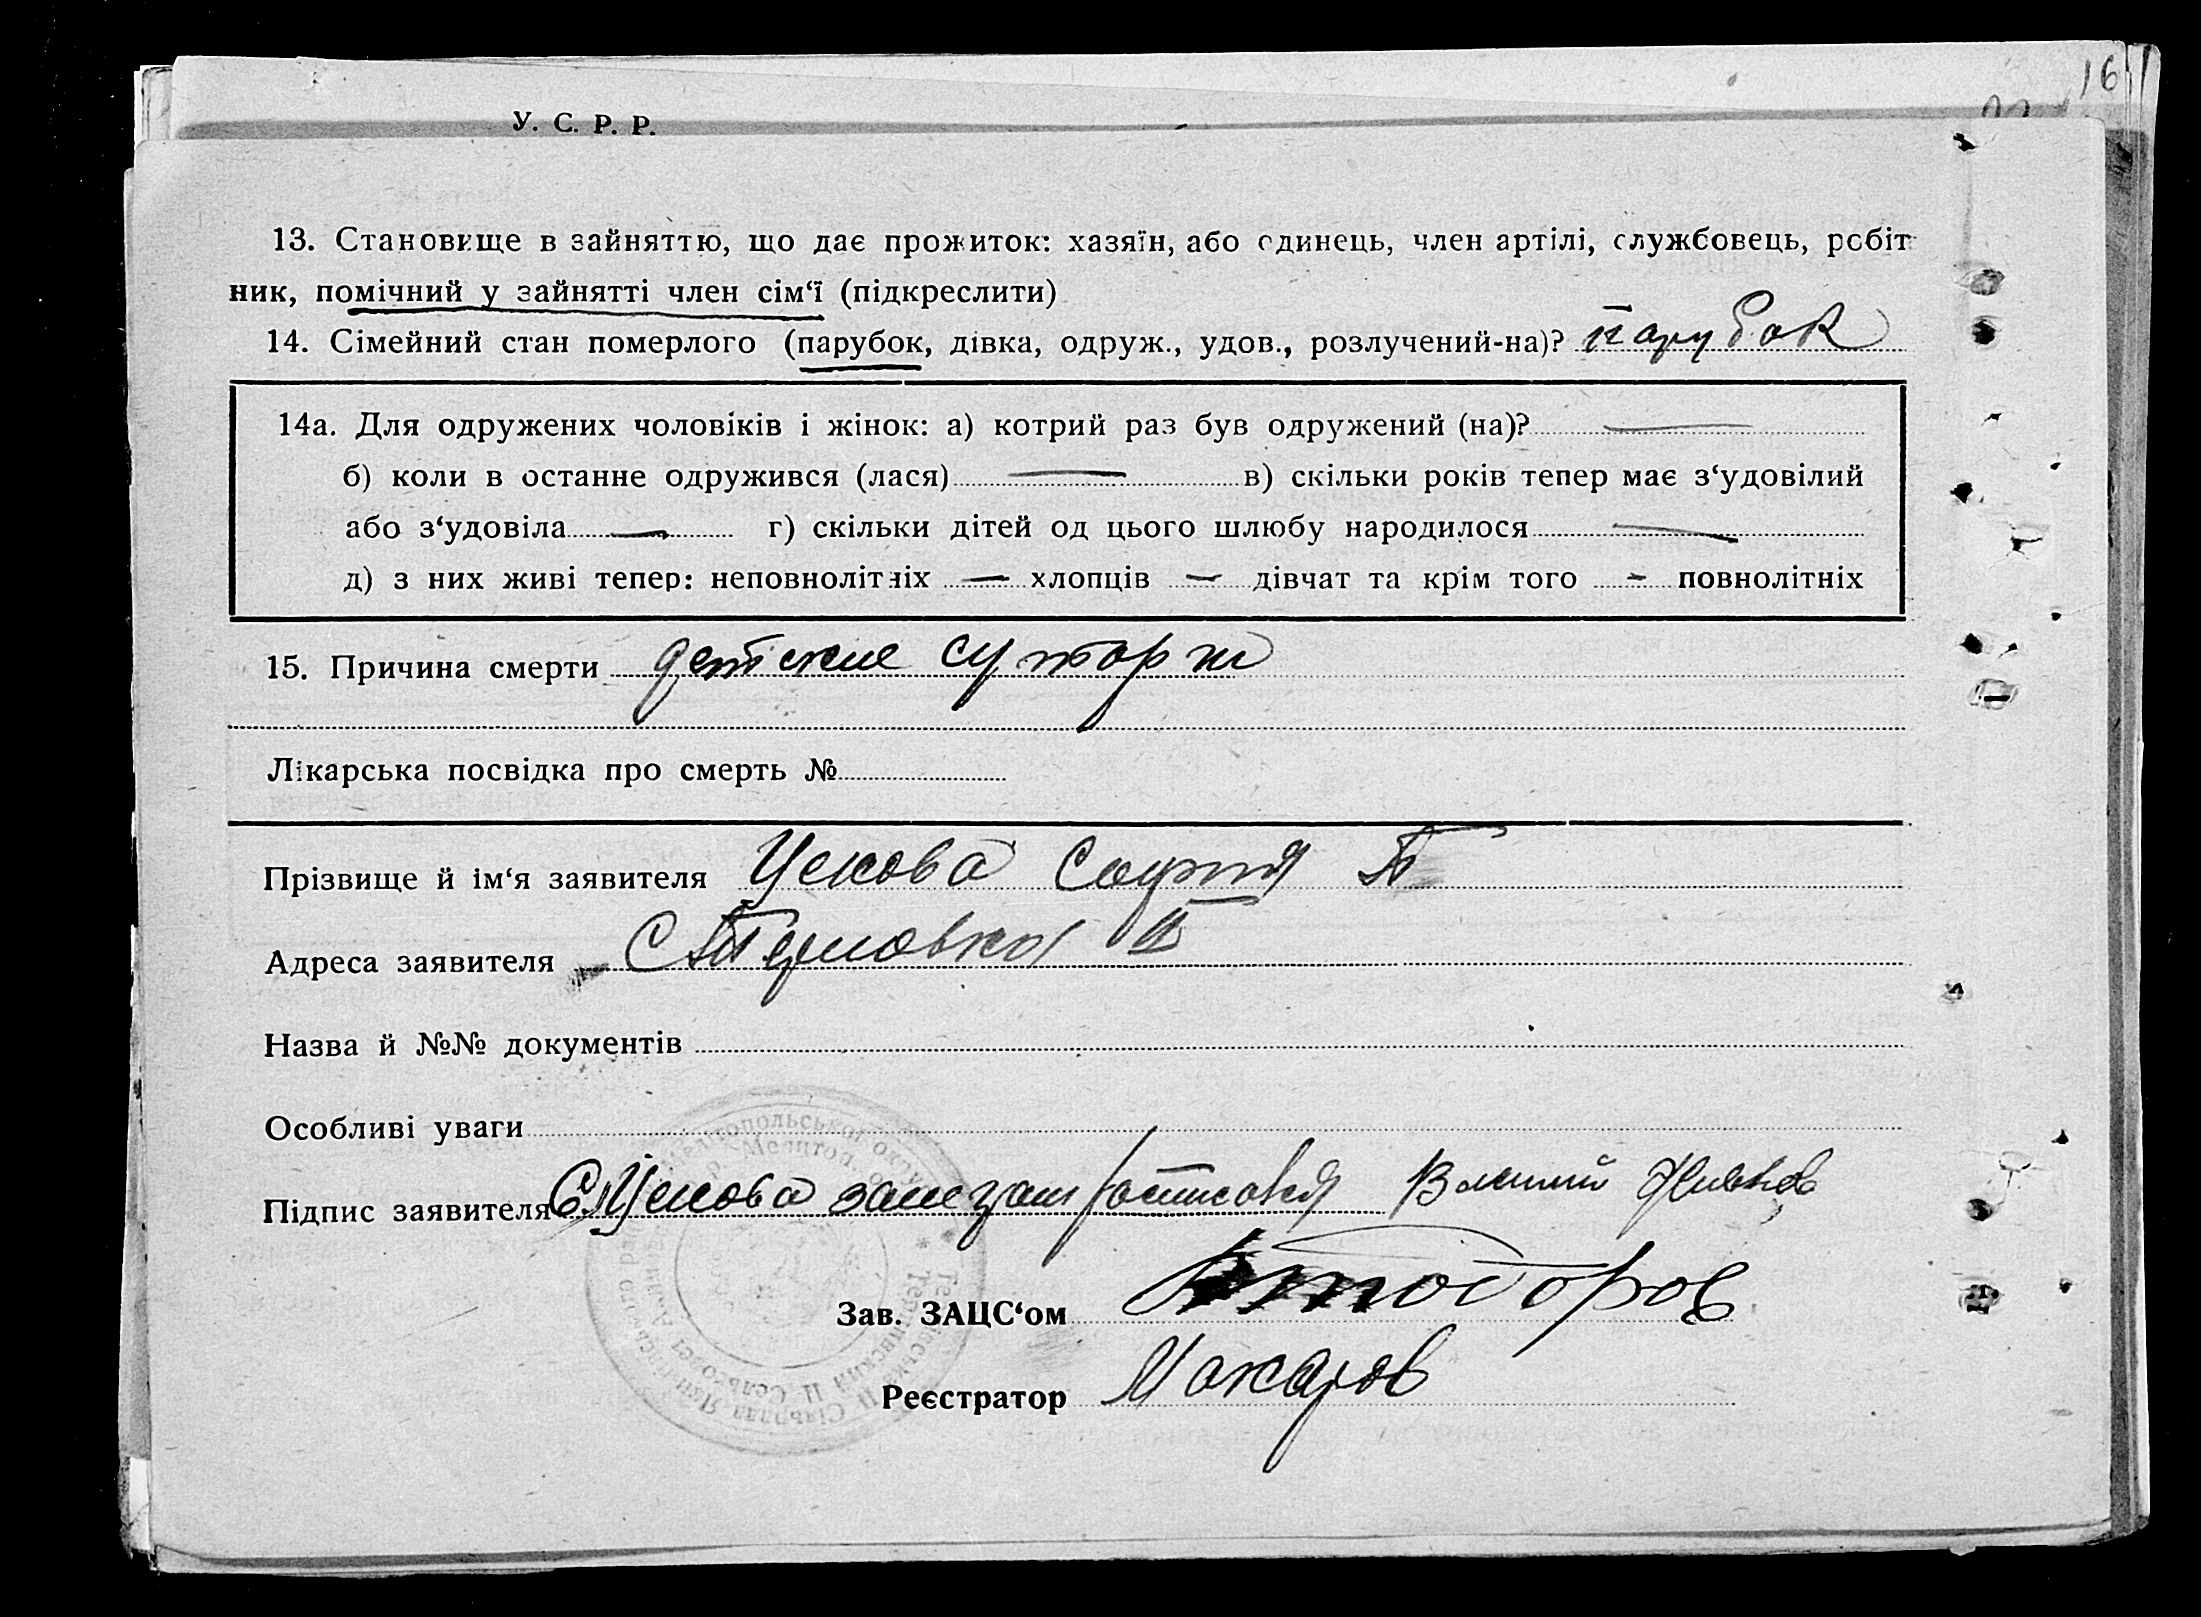 16
У. С. Р. Р.
13. Становище в зайняттю, що дає прожиток: хазяїн, або одинець, член артілі, службовець, робіт-
ник, помічний у зайнятті член сім‘ї (підкреслити)
14. Сімейний стан померлого (парубок, дівка, одруж., удов., розлучений-на)? парубок
14а. Для одружених чоловіків і жінок: а) котрий раз був одружений (на)? —
б) коли в останне одружився (лася) — в) скільки років тепер має з‘удовілий
або з‘удовіла — г) скільки дітей од цього шлюбу народилося —
д) з них живі тепер: неповнолітніх — хлопців — дівчат та крім того - повнолітніх
15. Причина смерти детские суторжи
Лікарська посвідка про смерть №
Прізвище й ім‘я заявителя Ускова София П
Адреса заявителя С Терновка II
Назва й №№ документів
Особливі уваги
Підпис заявителя С. Ускова
Зав. ЗАЦС‘ом
Реєстратор Макаров